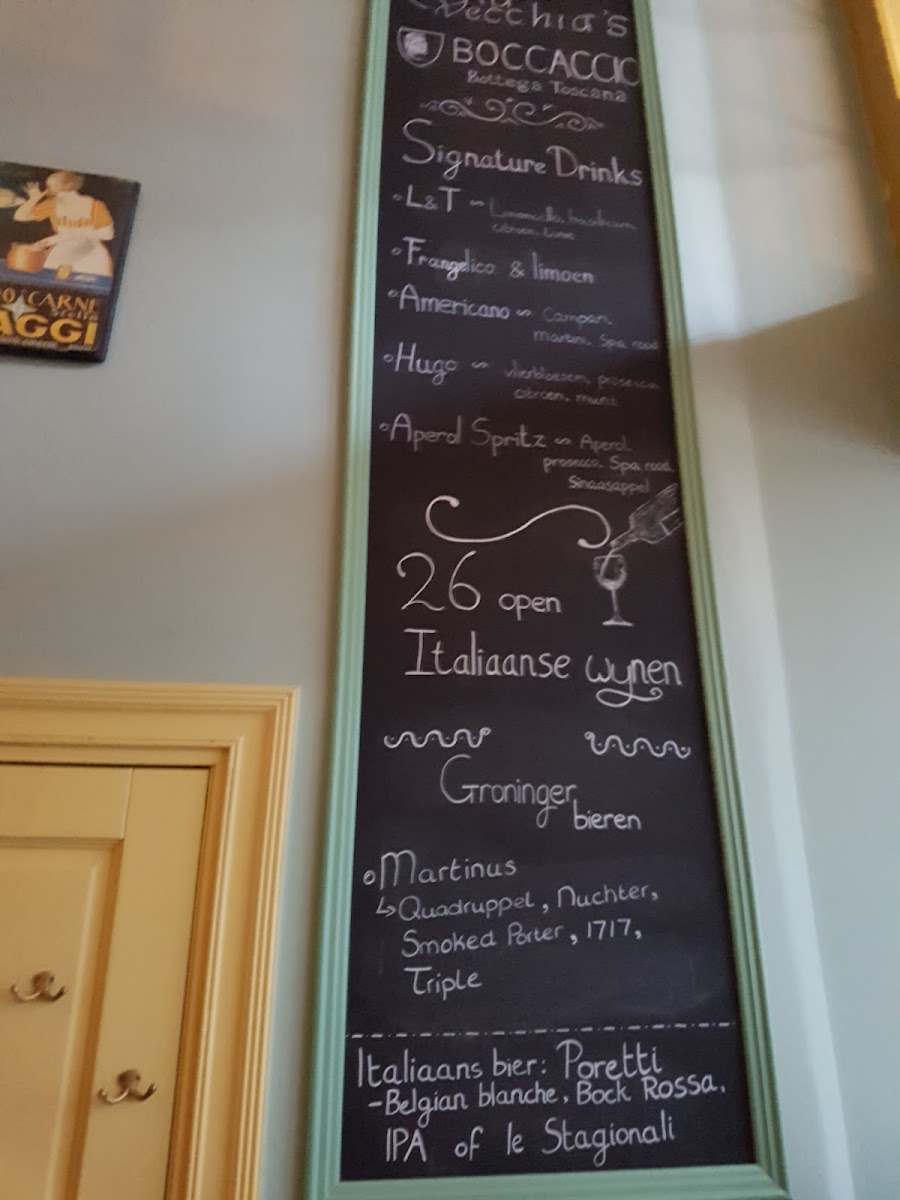 Vecchia's
BOCCACCIO
Bottega Toscana
Signature Drinks
L&T ~ Limoncello, basilicum,
citroen, tonic
Frangelico & limoen
Americano ~ Campari,
martini, Spa rood
Hugo ~ vlierbloesem, prosecco,
citroen, munt
Aperol Spritz ~ Aperol,
prosecco, Spa rood,
Sinaasappel
26 open
Italiaanse wynen
Groninger
bieren
Martinus
↳ Quadruppel, Nuchter,
Smoked Porter, 1717,
Triple
Italiaans bier: Poretti
- Belgian blanche, Bock Rossa,
IPA of le Stagionali
CARNE
AGGI